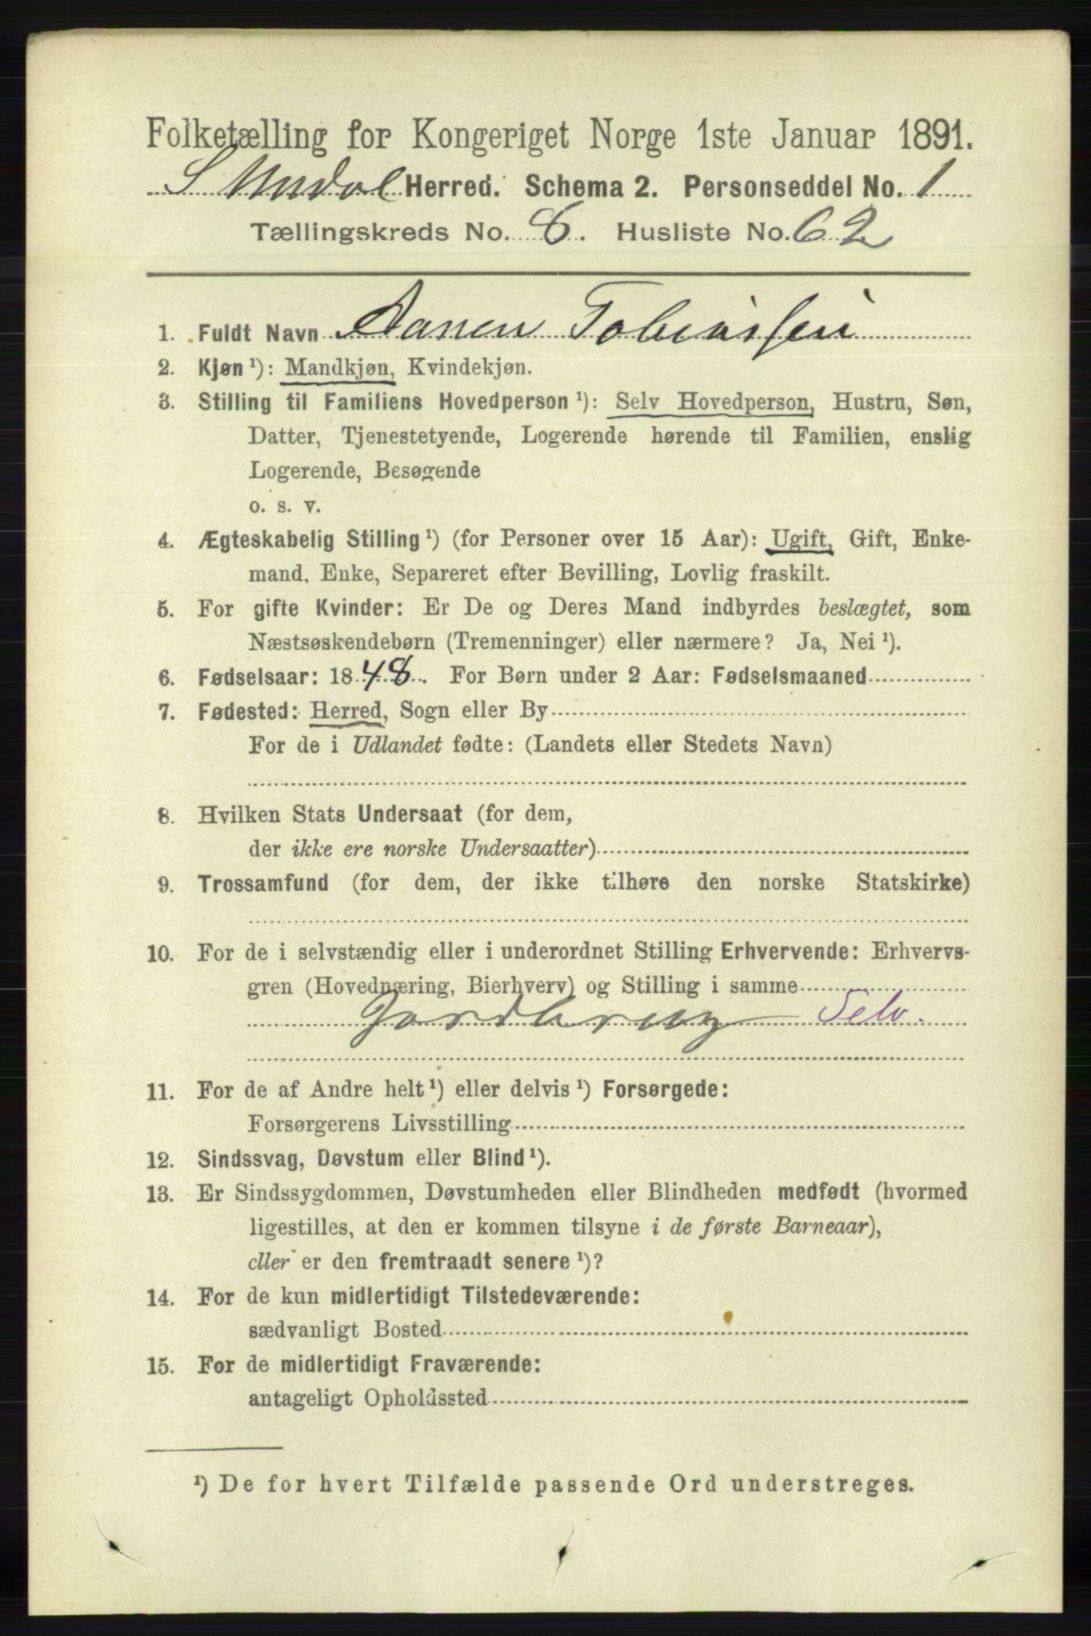 Folketælling for Kongeriget Norge 1ste Januar 1891.
S Undal Herred. Schema 2. Personseddel No. 1
Tællingskreds No. 8. Husliste No. 62
1. Fuldt Navn Aanen Tobiassen
2. Kjøn ¹): Mandkjøn, Kvindekjøn.
3. Stilling til Familiens Hovedperson ¹): Selv Hovedperson, Hustru, Søn,
Datter, Tjenestetyende, Logerende hørende til Familien, enslig
Logerende, Besøgende
o. s. v.
4. Ægteskabelig Stilling ¹) (for Personer over 15 Aar): Ugift, Gift, Enke-
mand, Enke, Separeret efter Bevilling, Lovlig fraskilt.
5. For gifte Kvinder: Er De og Deres Mand indbyrdes beslægtet, som
Næstsøskendebørn (Tremenninger) eller nærmere? Ja, Nei ¹).
6. Fødselsaar: 1848. For Børn under 2 Aar: Fødselsmaaned
7. Fødested: Herred, Sogn eller By
For de i Udlandet fødte: (Landets eller Stedets Navn)
8. Hvilken Stats Undersaat (for dem,
der ikke ere norske Undersaatter)
9. Trossamfund (for dem, der ikke tilhøre den norske Statskirke)
10. For de i selvstændig eller i underordnet Stilling Erhvervende: Erhvervs-
gren (Hovednæring, Bierhverv) og Stilling i samme
Jordbrug Selv.
11. For de af Andre helt ¹) eller delvis ¹) Forsørgede:
Forsørgerens Livsstilling
12. Sindssvag, Døvstum eller Blind ¹).
13. Er Sindssygdommen, Døvstumheden eller Blindheden medfødt (hvormed
ligestilles, at den er kommen tilsyne i de første Barneaar),
eller er den fremtraadt senere ¹)?
14. For de kun midlertidigt Tilstedeværende:
sædvanligt Bosted
15. For de midlertidigt Fraværende:
antageligt Opholdssted
¹) De for hvert Tilfælde passende Ord understreges.